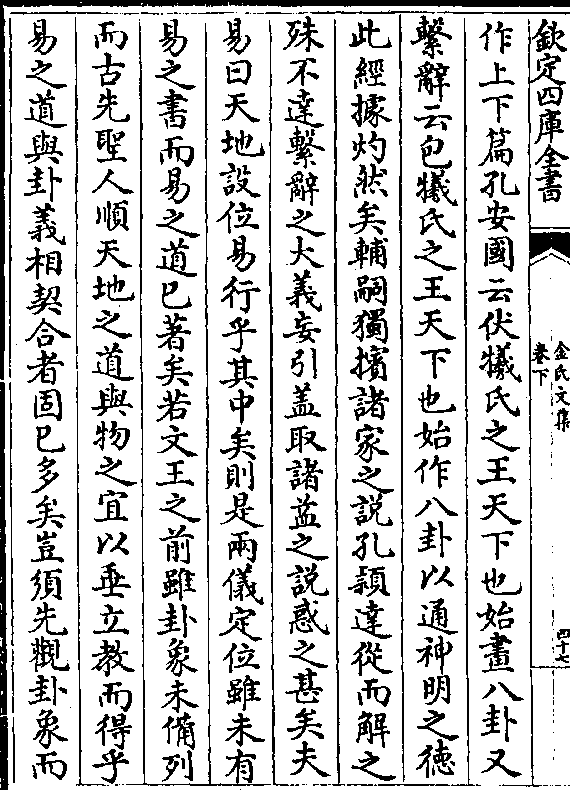 欽定四庫全書
金氏文集
卷下
四十七
作上下篇孔安國云伏犧氏之王天下也始畫八卦又
繫辭云包犧氏之王天下也始作八卦以通神明之德
此經據灼然矣輔嗣獨擯諸家之說孔穎達從而解之
殊不達繫辭之大義妄引盖取諸益之說惑之甚矣夫
易曰天地設位易行乎其中矣則是兩儀定位雖未有
易之書而易之道已著矣若文王之前雖卦象未備列
而古先聖人順天地之道與物之宜以垂立教而得乎
易之道與卦義相契合者固已多矣豈須先觀卦象而